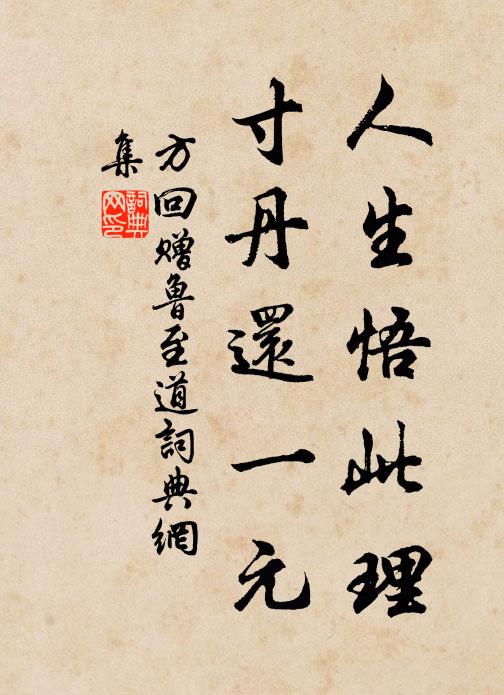 人生悟此理
寸丹還一元
方回贈魯至道詞典網
集
詞典
网印